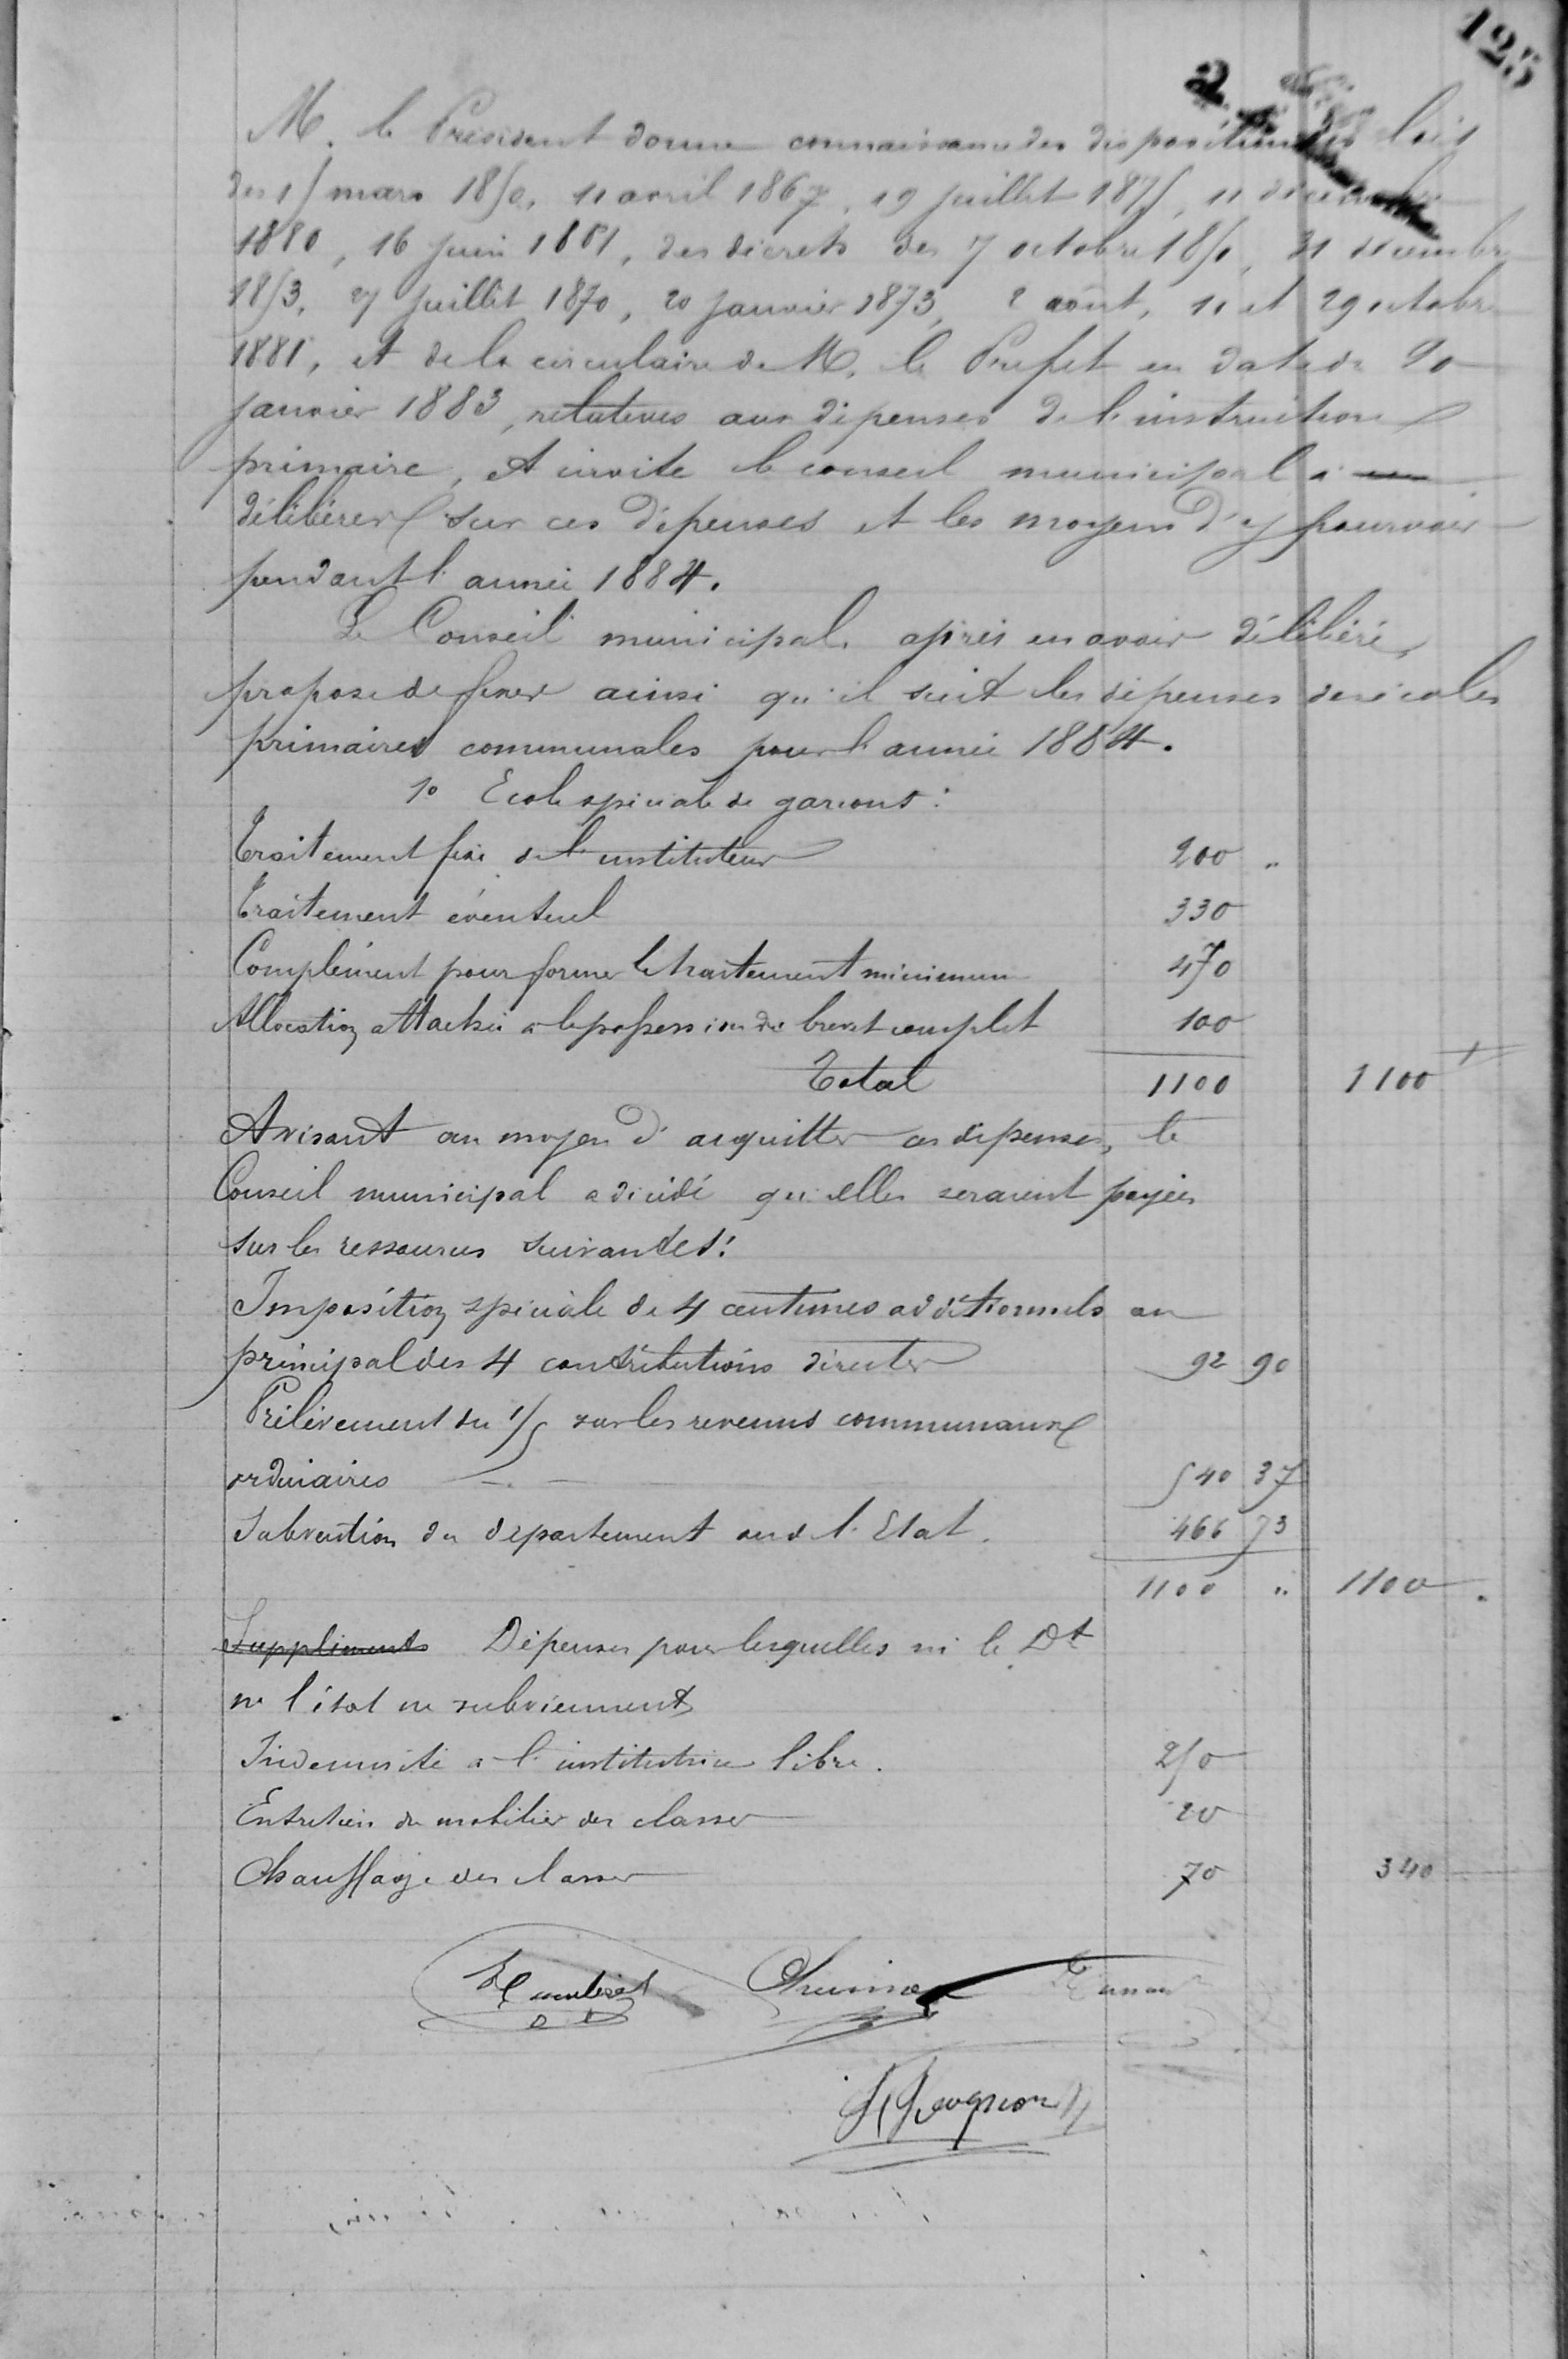 125
M. le Président donne connaissance des dispositions des lois
des 15 mars 1850, 11 avril 1867, 19 juillet 1875, 11 décembre
1880, 16 juin 1881, des décrets des 7 octobre 1850, 31 décembre
1853, 27 juillet 1870, 20 janvier 1873, 2 août, 11 et 29 octobre
1881, et de la circulaire de M. le Préfet en date de 20
janvier 1883, relatives aux dépenses de l'instruction
primaire, et invite le conseil municipal à
délibérer sur ces dépenses et les moyens d'y pourvoir
pendant l'année 1884.
Le Conseil municipal, après en avoir délibéré,
propose de fixer ainsi qu'il suit les dépenses des écoles
primaires communales pour l'année 1884.
1º Ecole spéciale de garçons :
Traitement fixe de l'instituteur 200 "
Traitement éventuel 330
Complément pour former le traitement minimum 470
Allocation attachée à la possession du brevet complet 100
Total 1100 1100
Avisant au moyen d'acquitter ces dépenses, le
Conseil municipal a décidé qu'elles seraient payées
sur les ressources suivantes :
Imposition spéciale de 4 centimes additionnels au
principal des 4 contributions directes 92 90
Prélèvement du 1/5 sur les revenus communaux
ordinaires 540 37
Subvention du département ou de l'Etat. 466 73
1100 " 1100
Suppléments Dépenses pour lesquelles ni le Dt
ni l'état ne subviennent
Indemnité à l'institutrice libre. 250
Entretien du mobilier des classes 20
Chauffage des classes 70 340